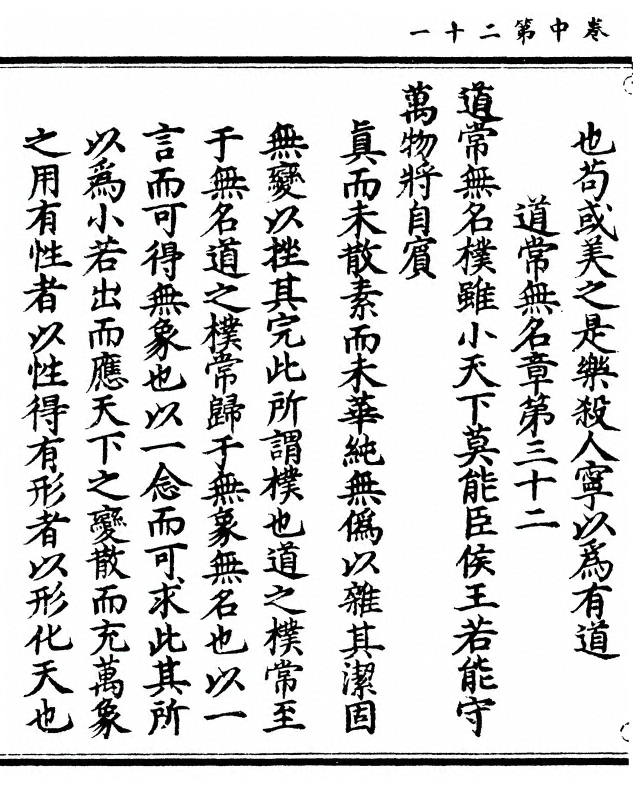 卷中第二十一
也苟或美之是樂殺人寧以爲有道
道常無名章第三十二
道常無名樸雖小天下莫能臣侯王若能守
萬物將自賓
眞而未散素而未華純無僞以雜其潔固
無變以挫其完此所謂樸也道之樸常至
于無名道之樸常歸于無象無名也以一
言而可得無象也以一念而可求此其所
以爲小若出而應天下之變散而充萬象
之用有性者以性得有形者以形化天也